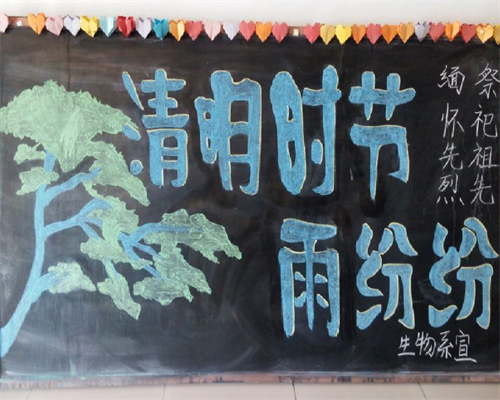 清明时节
雨纷纷
祭祀祖先
缅怀先烈
生物系宣